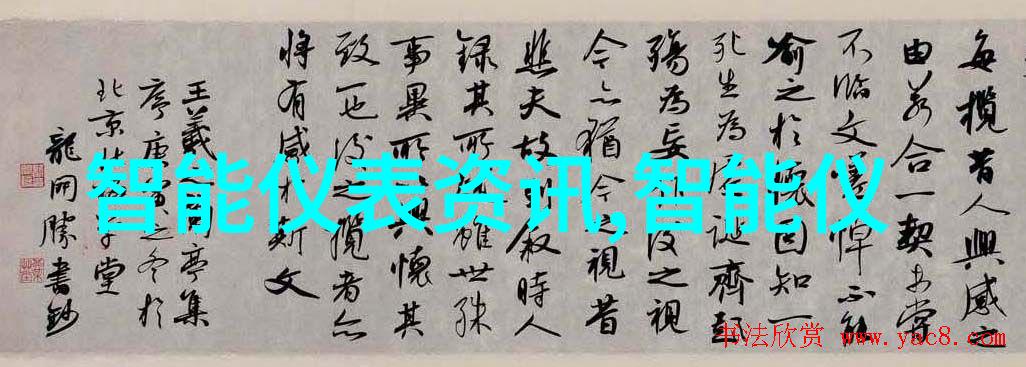 每攬昔人興感之
由若合一契未嘗
不臨文嗟悼不能
喻之於懷固知一
死生為虛誕齊彭
殤為妄作後之視
今亦猶今之視昔
悲夫故列敘時人
錄其所述雖世殊
事異所以興懷其
致一也後之攬者亦
將有感於斯文
王羲之蘭亭集
序庚寅之冬於
北京
堂
龍開勝書鈔
智能仪表资讯,智能仪
书法欣赏 www.yac8.com